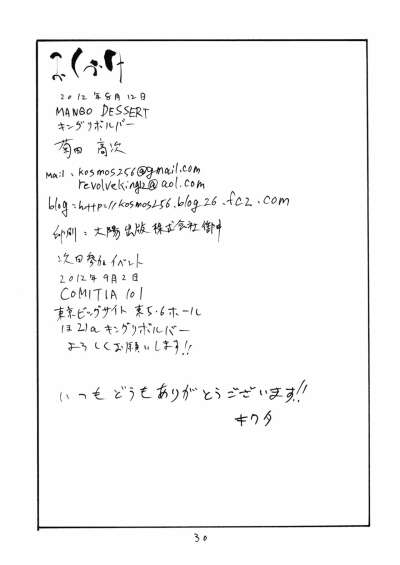 おくづけ
2012年8月12日
MANGO DESSERT
キングリボルバー
菊田 高次
mail:kosmos256@gmail.com
revolveking12@aol.com
blog:http://kosmos256.blog26.fc2.com
印刷:大陽出版株式会社御中
次回参加イベント
2012年9月2日
COMITIA 101
東京ビッグサイト 東5・6ホール
は21a キングリボルバー
よろしくお願いします!!
いつもどうもありがとうございます!!
キクタ
30